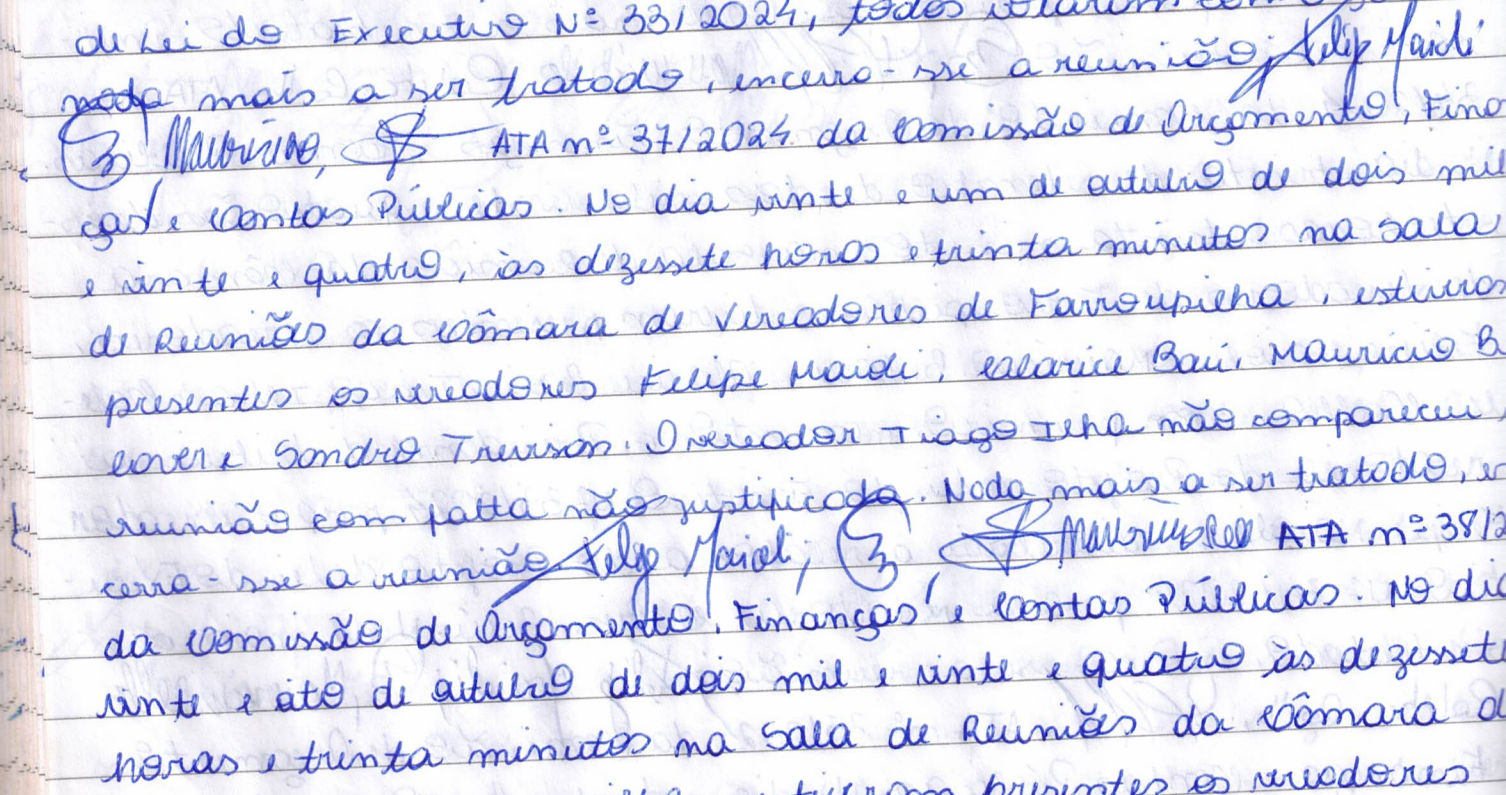 de Lei do Executivo Nº 33/2024, todos votaram
nada mais a ser tratado, encerro-sse a reunião, Felip Maioli
Maurício, ATA nº 37/2024 da Comissão de Orçamento, Finan
ças e Contas Públicas. No dia vinte e um de outubro de dois mil
e vinte e quatro, às dezessete horas e trinta minutos na Sala
de Reuniões da Câmara de Vereadores de Farroupilha, estivera
presentes os vereadores Felipe Maioli, Calarice Baú, Mauricio B
lover e Sandro Trevisan. O vereador Tiago Ilha não compareceu,
reunião com falta não justificada. Nada mais a ser tratado, e
cerra-sse a reunião Felip Maioli, ATA nº 38/2
da Comissão de Orçamento, Finanças e Contas Públicas. No dia
vinte e oito de outubro de dois mil e vinte e quatro às dezessete
horas e trinta minutos na Sala de Reuniões da Câmara d
presentes os vereadores